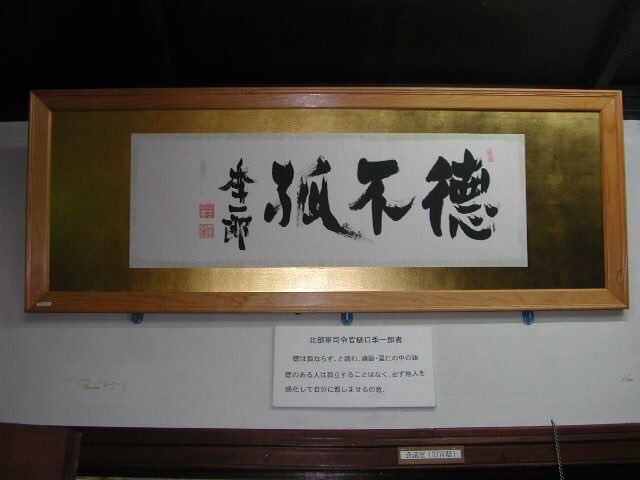 德不孤
季一郎
北部軍司令官樋口季一郎書
徳は孤ならず。と読む。論語・里仁の中の語
徳のある人は孤立することはなく、必ず他人を
感化して自分に親しませるの意。
会議室(旧官邸)